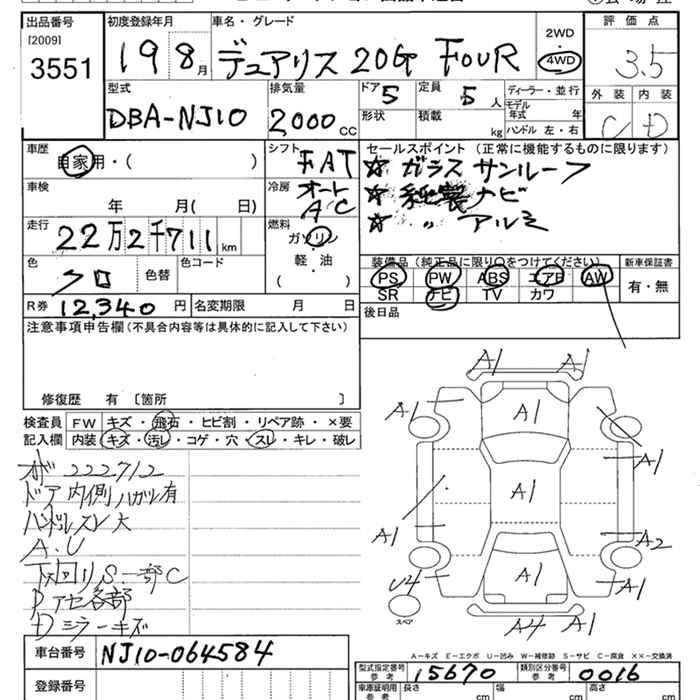 出品番号 初度登録年月 車名・グレード 評価点
[2009]
3551 19 8月 デュアリス 20G FOUR 2WD 4WD 3.5
型式 排気量 ドア 5 定員 5人 ディーラー・並行 外装 内装
DBA-NJ10 2000CC 形状 積載 kg モデル年式 年 ハンドル 左・右 C D
車歴 シフト セールスポイント (正常に機能するものに限ります)
自家用・( ) FAT ☆ ガラスサンルーフ
車検 冷房 オートAC ☆ 純製ナビ
年 月( 日) ☆ 〃 アルミ
走行 燃料
22万2千711km ガソリン
色 色替 色コード 軽・油
クロ ( )
装備品 (純正品に限り○をつけてください) 新車保証書
PS PW ABS エアB AW 有・無
SR ナビ TV カワ
R券 12,340円 名変期限 月 日 後日品
注意事項申告欄(不具合内容等は具体的に記入して下さい)
修復歴 有 〔箇所 〕
検査員 FW キズ・飛石・ヒビ割・リペア跡・×要
記入欄 内装 キズ・汚レ・コゲ・穴・スレ・キレ・破レ
222712
ドア内側ハガレ有
ハンドルスレ大
A.U
下回りS一部C
Pアセ各部
Dミラーキズ
A1 A1
A1 A1
A1
A1
A1 A2
U4 A1 A1
スペア
A4 A1
A-キズ E-エクボ U-凹み W-補修跡 S-サビ C-腐食 XX-交換済
車台番号 NJ10-064584
型式指定番号 参考 15670 類別区分番号 参考 0016
登録番号
車庫証明用 参考 長さ cm 幅 cm 高さ cm